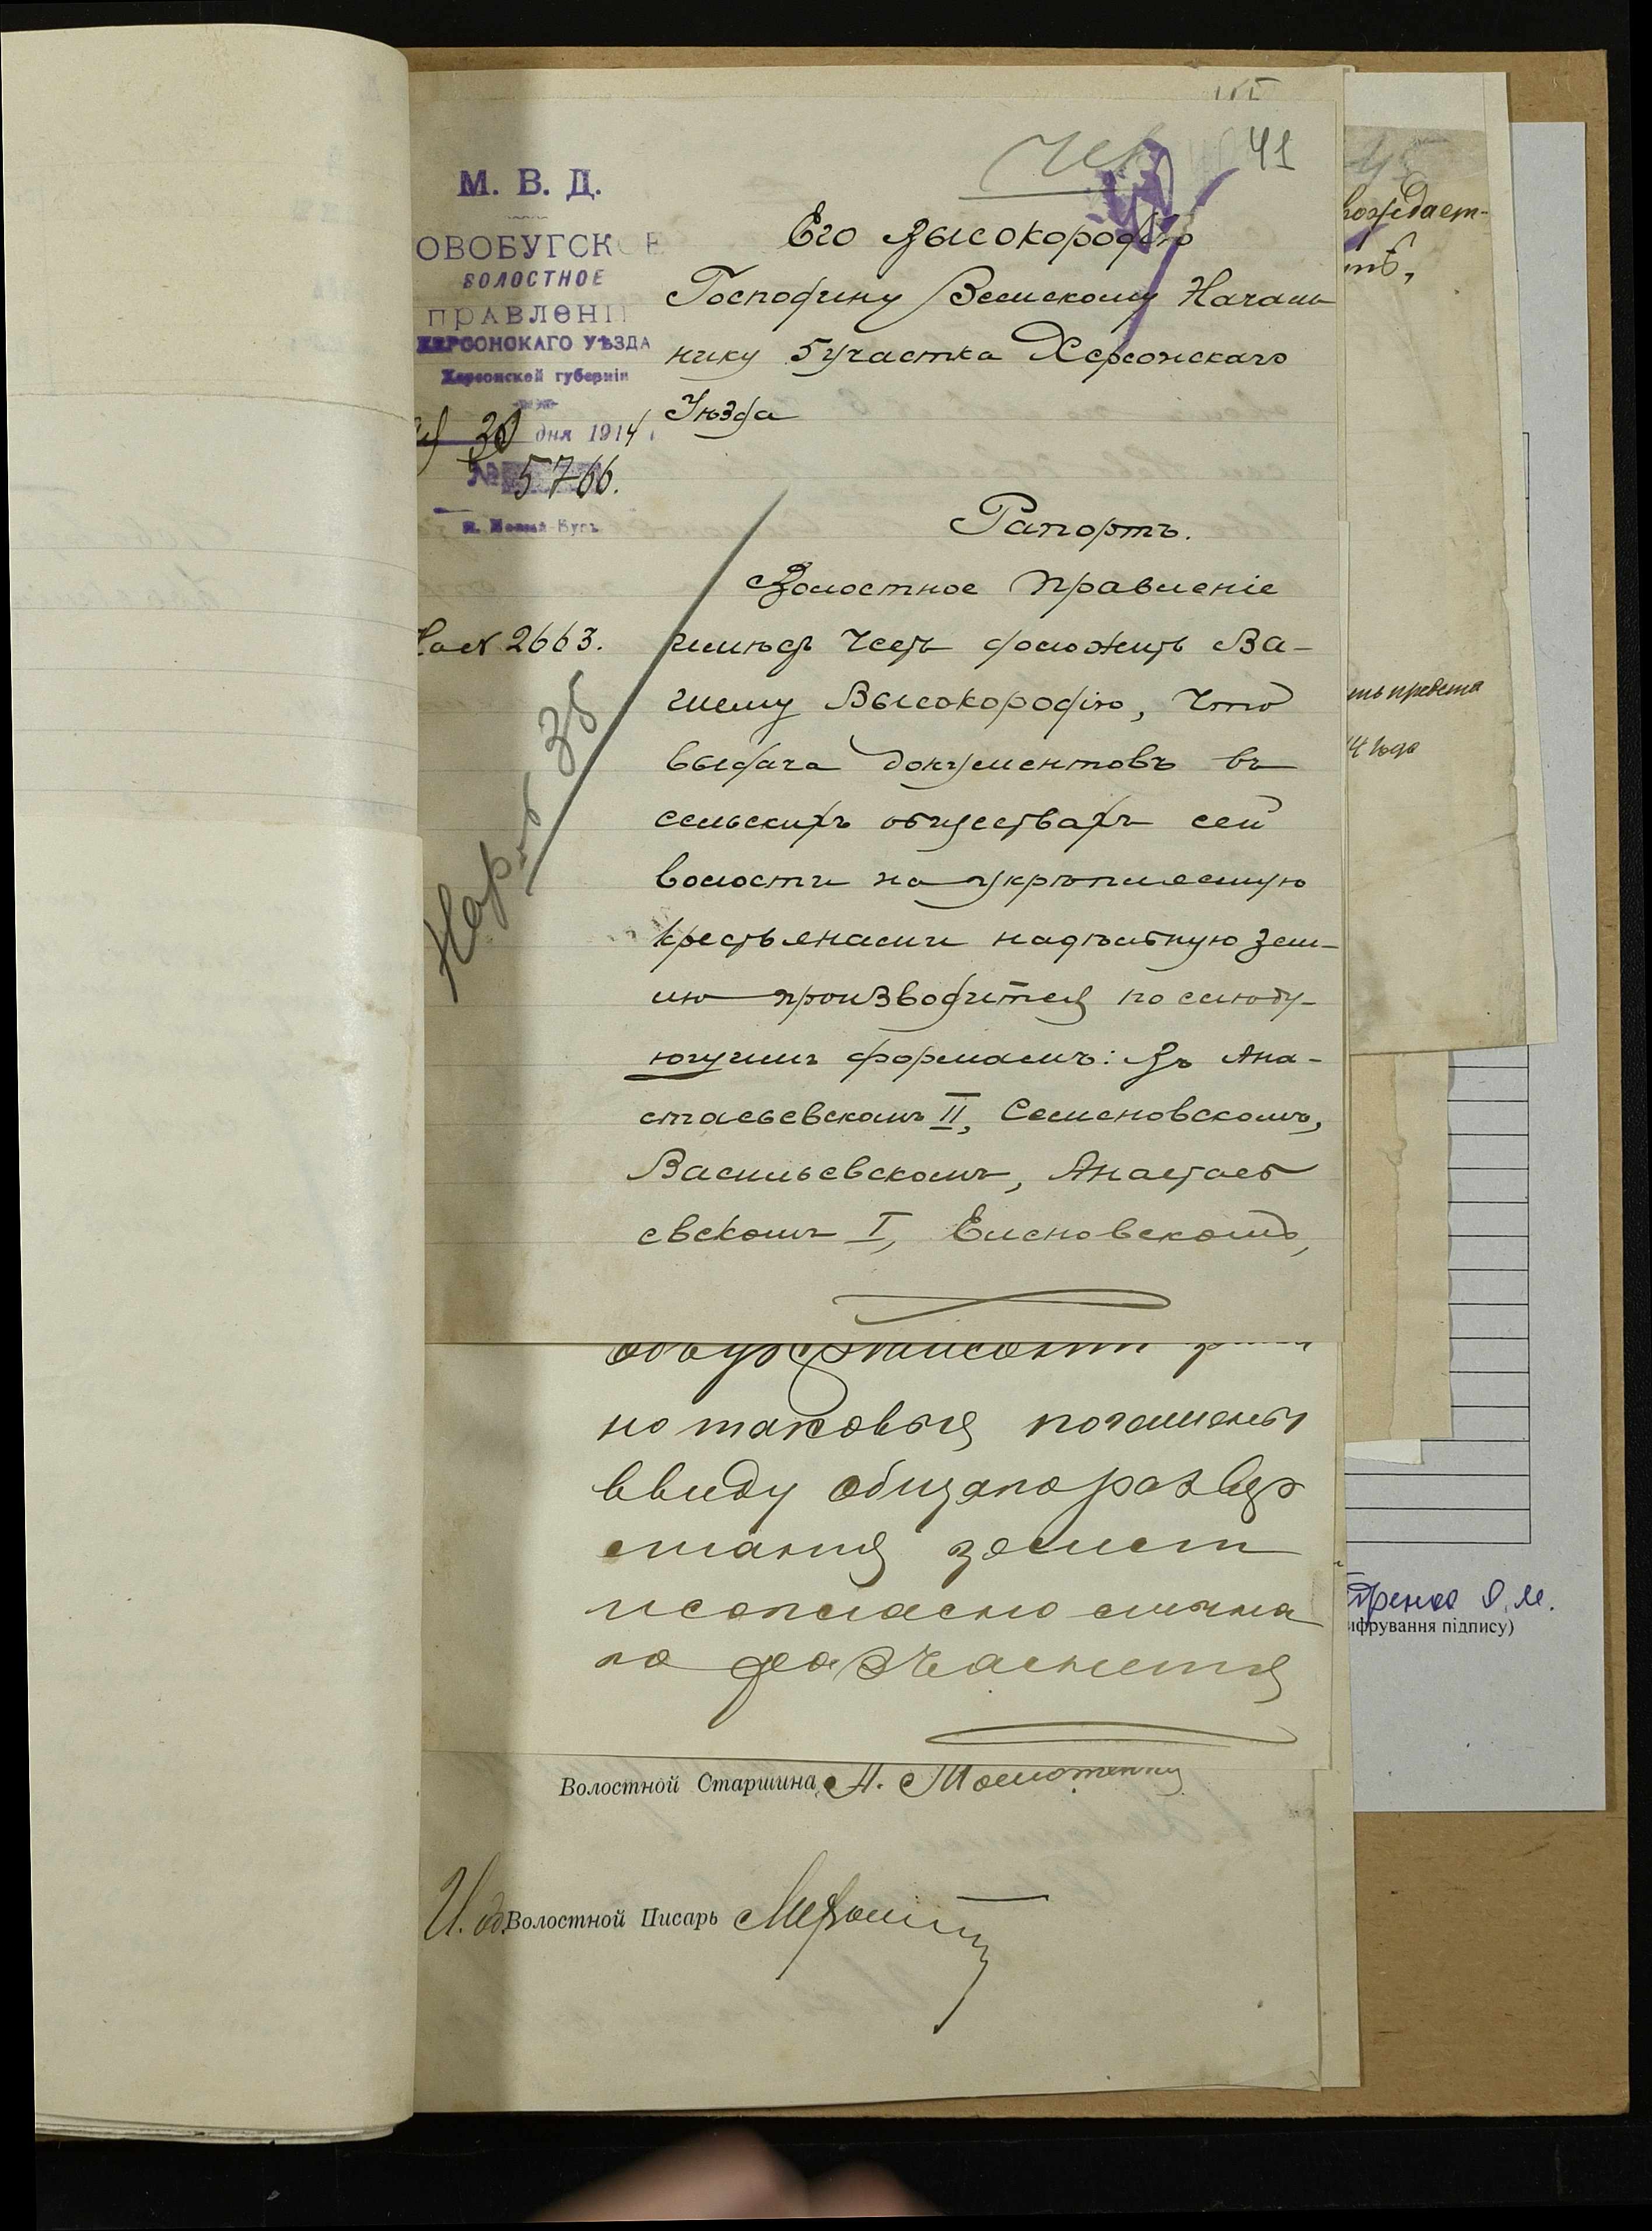 41
М. В. Д.
ОВОБУГСКОЕ
ВОЛОСТНОЕ
ПРАВЛЕНІ
ХЕРСОНСКАГО УѢЗДА
Херсонской губерніи
30 дня 1914
№ 5766.
Его Высокородію
Господину Земскому Началь
нику 5 участка Херсонскаго
Уѣзда
Рапортъ.
На № 2663.
Волостное Правленіе
имѣетъ честь доложить Ва-
шему Высокородію, что
выдача документовъ въ
сельскихъ обществахъ сей
волости на укрѣпленную
крестьянами надѣльную зем-
лю производится по слѣду-
ющимъ формамъ: Въ Ана-
стасьевскомъ II, Семеновскомъ,
Васильевскомъ, Анастась
евскомъ I, Елисновскомъ,
но таковыя погашены
ввиду общаго развер
станія земли
и согласно лична
го разъясненія
Волостной Старшина А.
И. об. Волостной Писарь
ождает-
тѣ,
ть предста
14 года
ифрування підпису)